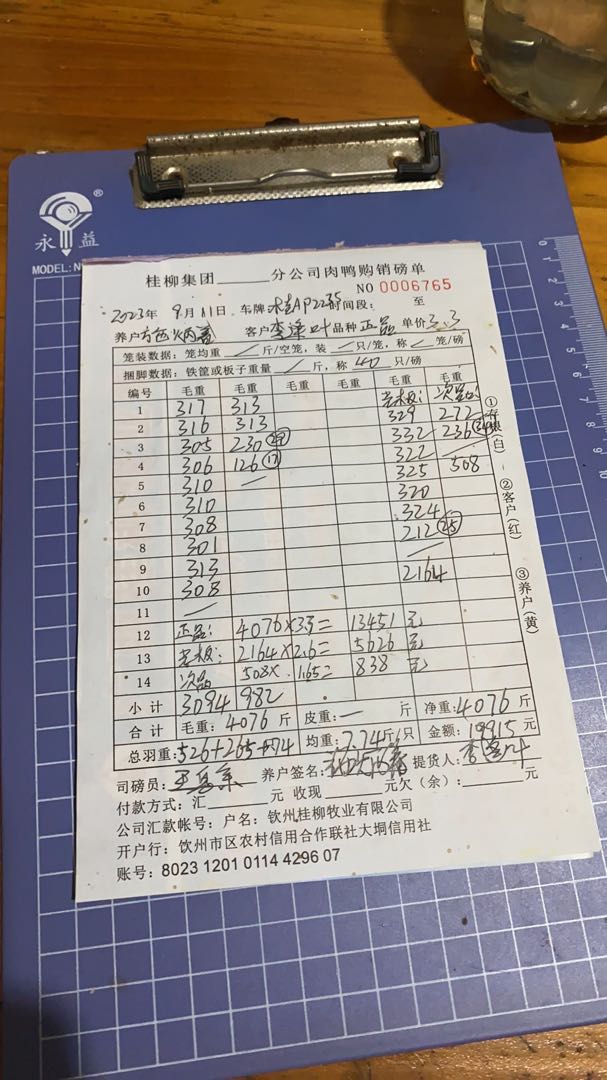 永益®
MODEL:N
桂柳集团______分公司肉鸭购销磅单
NO 0006765
2023年 9月11日 车牌 AP2235 时间段: 至
养户 客户 李 叶 品种 正品 单价 3.3
笼装数据: 笼均重 / 斤/空笼, 装 / 只/笼, 称 / 笼/磅
捆脚数据: 铁筐或板子重量 / 斤, 称 40 只/磅
编号 毛重 毛重 毛重 毛重 毛重 毛重
1 317 313 老板: 次品:
2 316 313 329 272
3 305 230 (29) 332 236
4 306 126 (17) 322 /
5 310 / 325 508
6 310 320
7 308 324
8 301 212 (25)
9 313 /
10 308 2164
11 /
12 正品: 4076×3.3= 13451元
13 老板: 2164×2.6= 5626元
14 次品 508× 1.65= 838元
小计 3094 982
合计 毛重: 4076 斤 皮重: — 斤 净重: 4076 斤
总羽重: 526+265+74 均重: 7.74斤/只 金额: 19915元
司磅员: 养户签名: 提货人:
付款方式: 汇______元 收现______元欠(余):______元
公司汇款帐号: 户名: 钦州桂柳牧业有限公司
开户行: 钦州市区农村信用合作联社大垌信用社
账号: 8023 1201 0114 4296 07
①存根(白)
②客户(红)
③养户(黄)